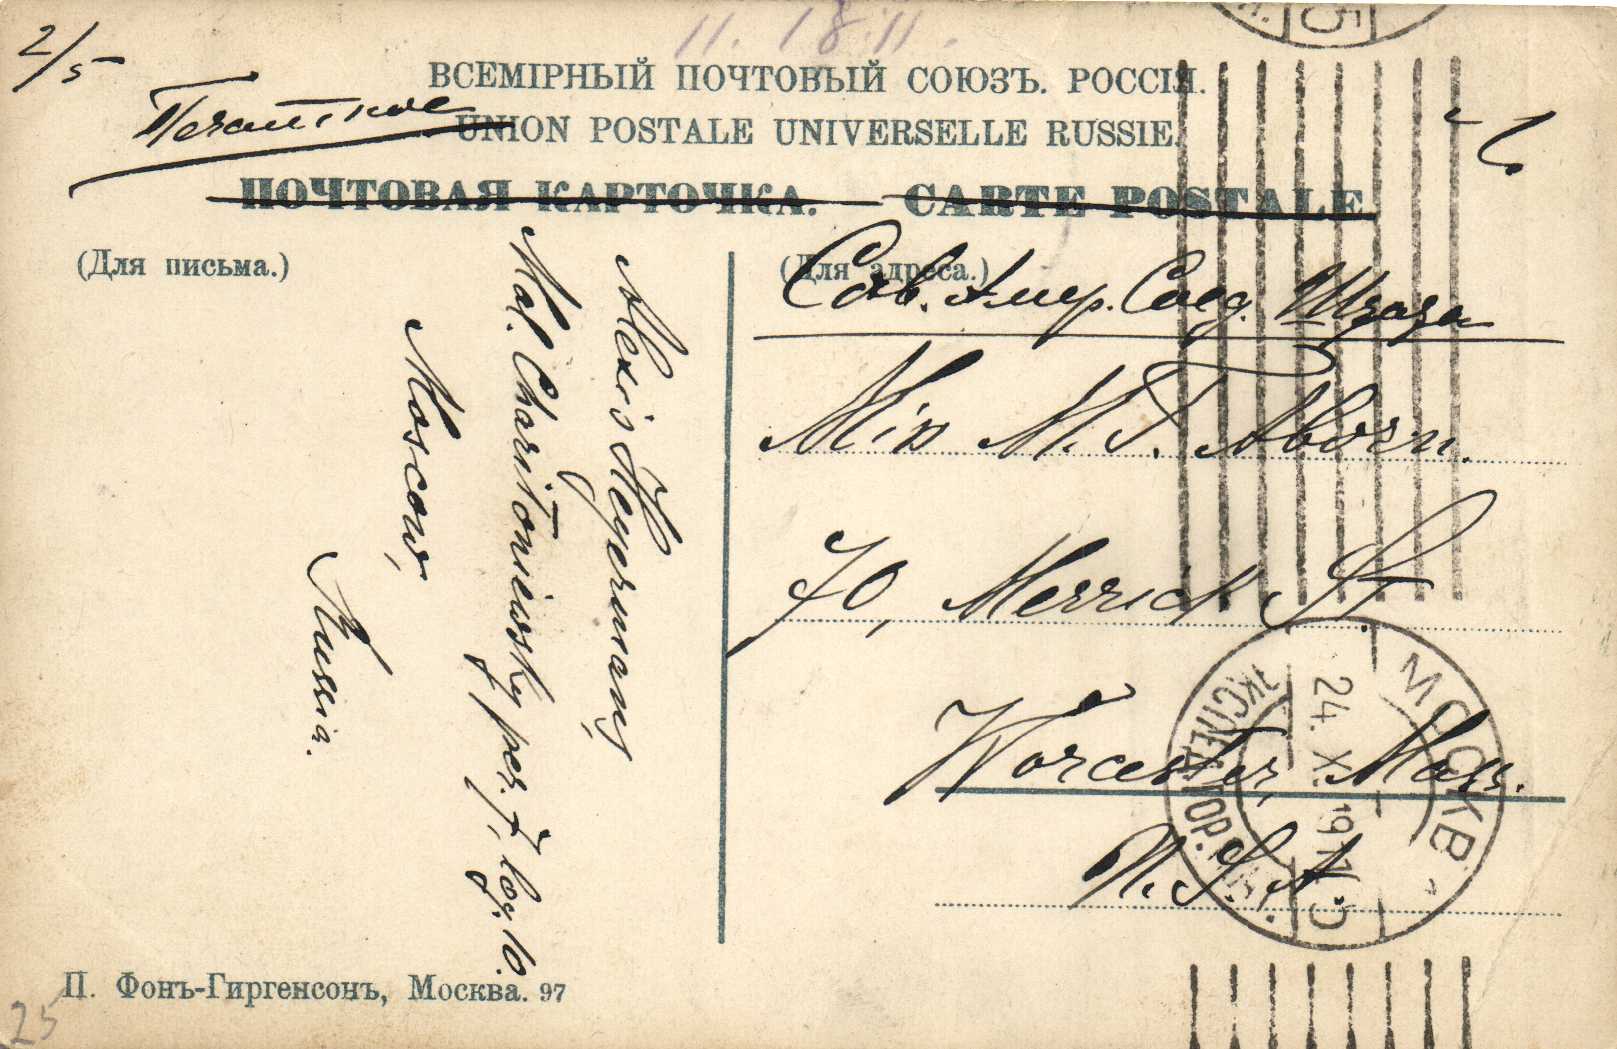 11.18.11.
2/5
ВСЕМІРНЫЙ ПОЧТОВЫЙ СОЮЗЪ. РОССІЯ.
Печатное
UNION POSTALE UNIVERSELLE RUSSIE.
ПОЧТОВАЯ КАРТОЧКА. CARTE POSTALE.
(Для письма.)
Alexis Hegermann,
Mal. Charitoniewsky per. 7, log. 10.
Moscow,
Russia.
(Для адреса.)
Сѣв. Амер. Соед. Штаты
Miss M. T. Aborn.
70, Merrick St.
Worcester, Mass.
U. S. A.
МОСКВА
24. X. 1911
ЭКСПЕД. ГОР.
П. Фонъ-Гиргенсонъ, Москва. 97
25